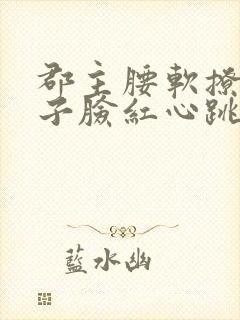 郡主腰軟撩
子臉紅心跳
藍水幽